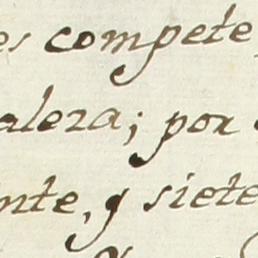 es compete
aleza; por
nte, y siete